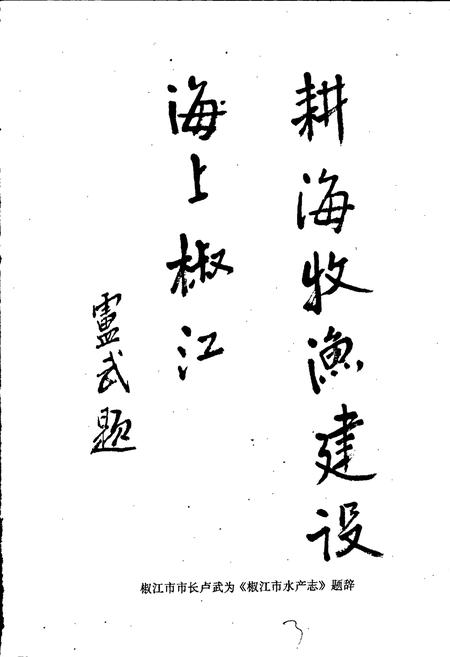 耕海牧渔建设
海上椒江
盧武题
椒江市市长卢武为《椒江市水产志》题辞
3